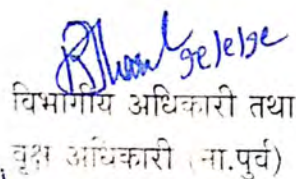 विभागीय अधिकारी तथा
वृक्ष अधिकारी (ना.पुर्व)